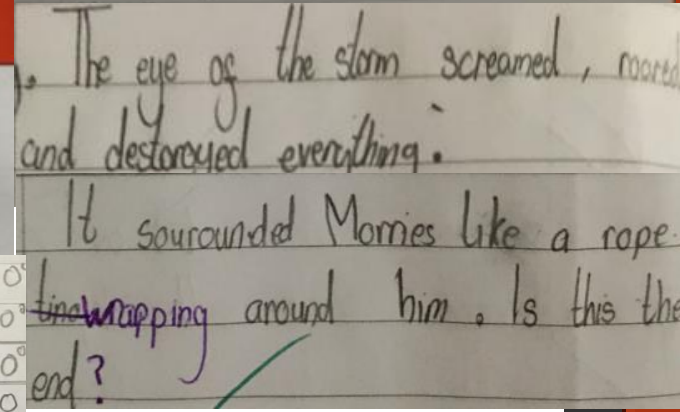 The eye of the storm screamed, roared
and destoroyed everything.
It sourounded Morries like a rope
wrapping around him. Is this the
end?